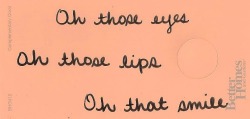 Oh those eyes
Oh those lips
Oh that smile
Better
Homes